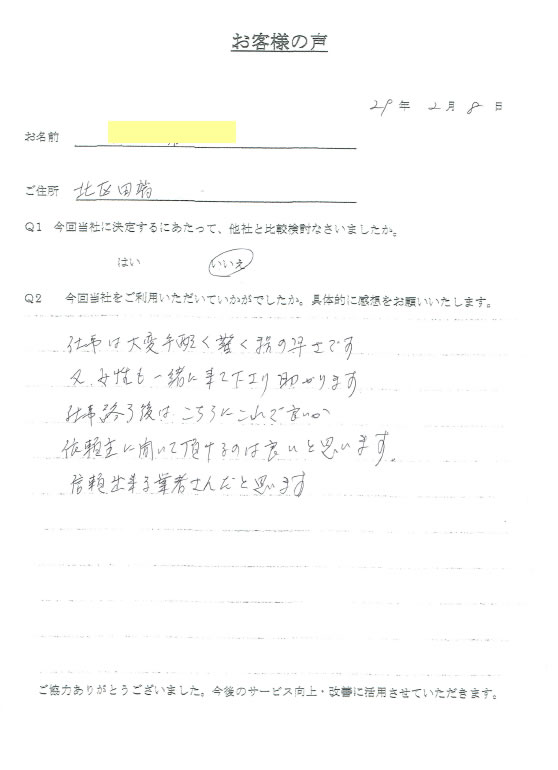 お客様の声
29年 2月 8日
お名前
ご住所 北区田端
Q1 今回当社に決定するにあたって、他社と比較検討なさいましたか。
はい いいえ
Q2 今回当社をご利用いただいていかがでしたか。具体的に感想をお願いいたします。
仕事は大変手際く驚く程の早さです
又、女性も一緒に来て下さり助かります
仕事終了後は こちらにこれでないか
依頼主に聞いて頂けるのは良いと思います。
信頼出来る業者さんだと思います
ご協力ありがとうございました。今後のサービス向上・改善に活用させていただきます。